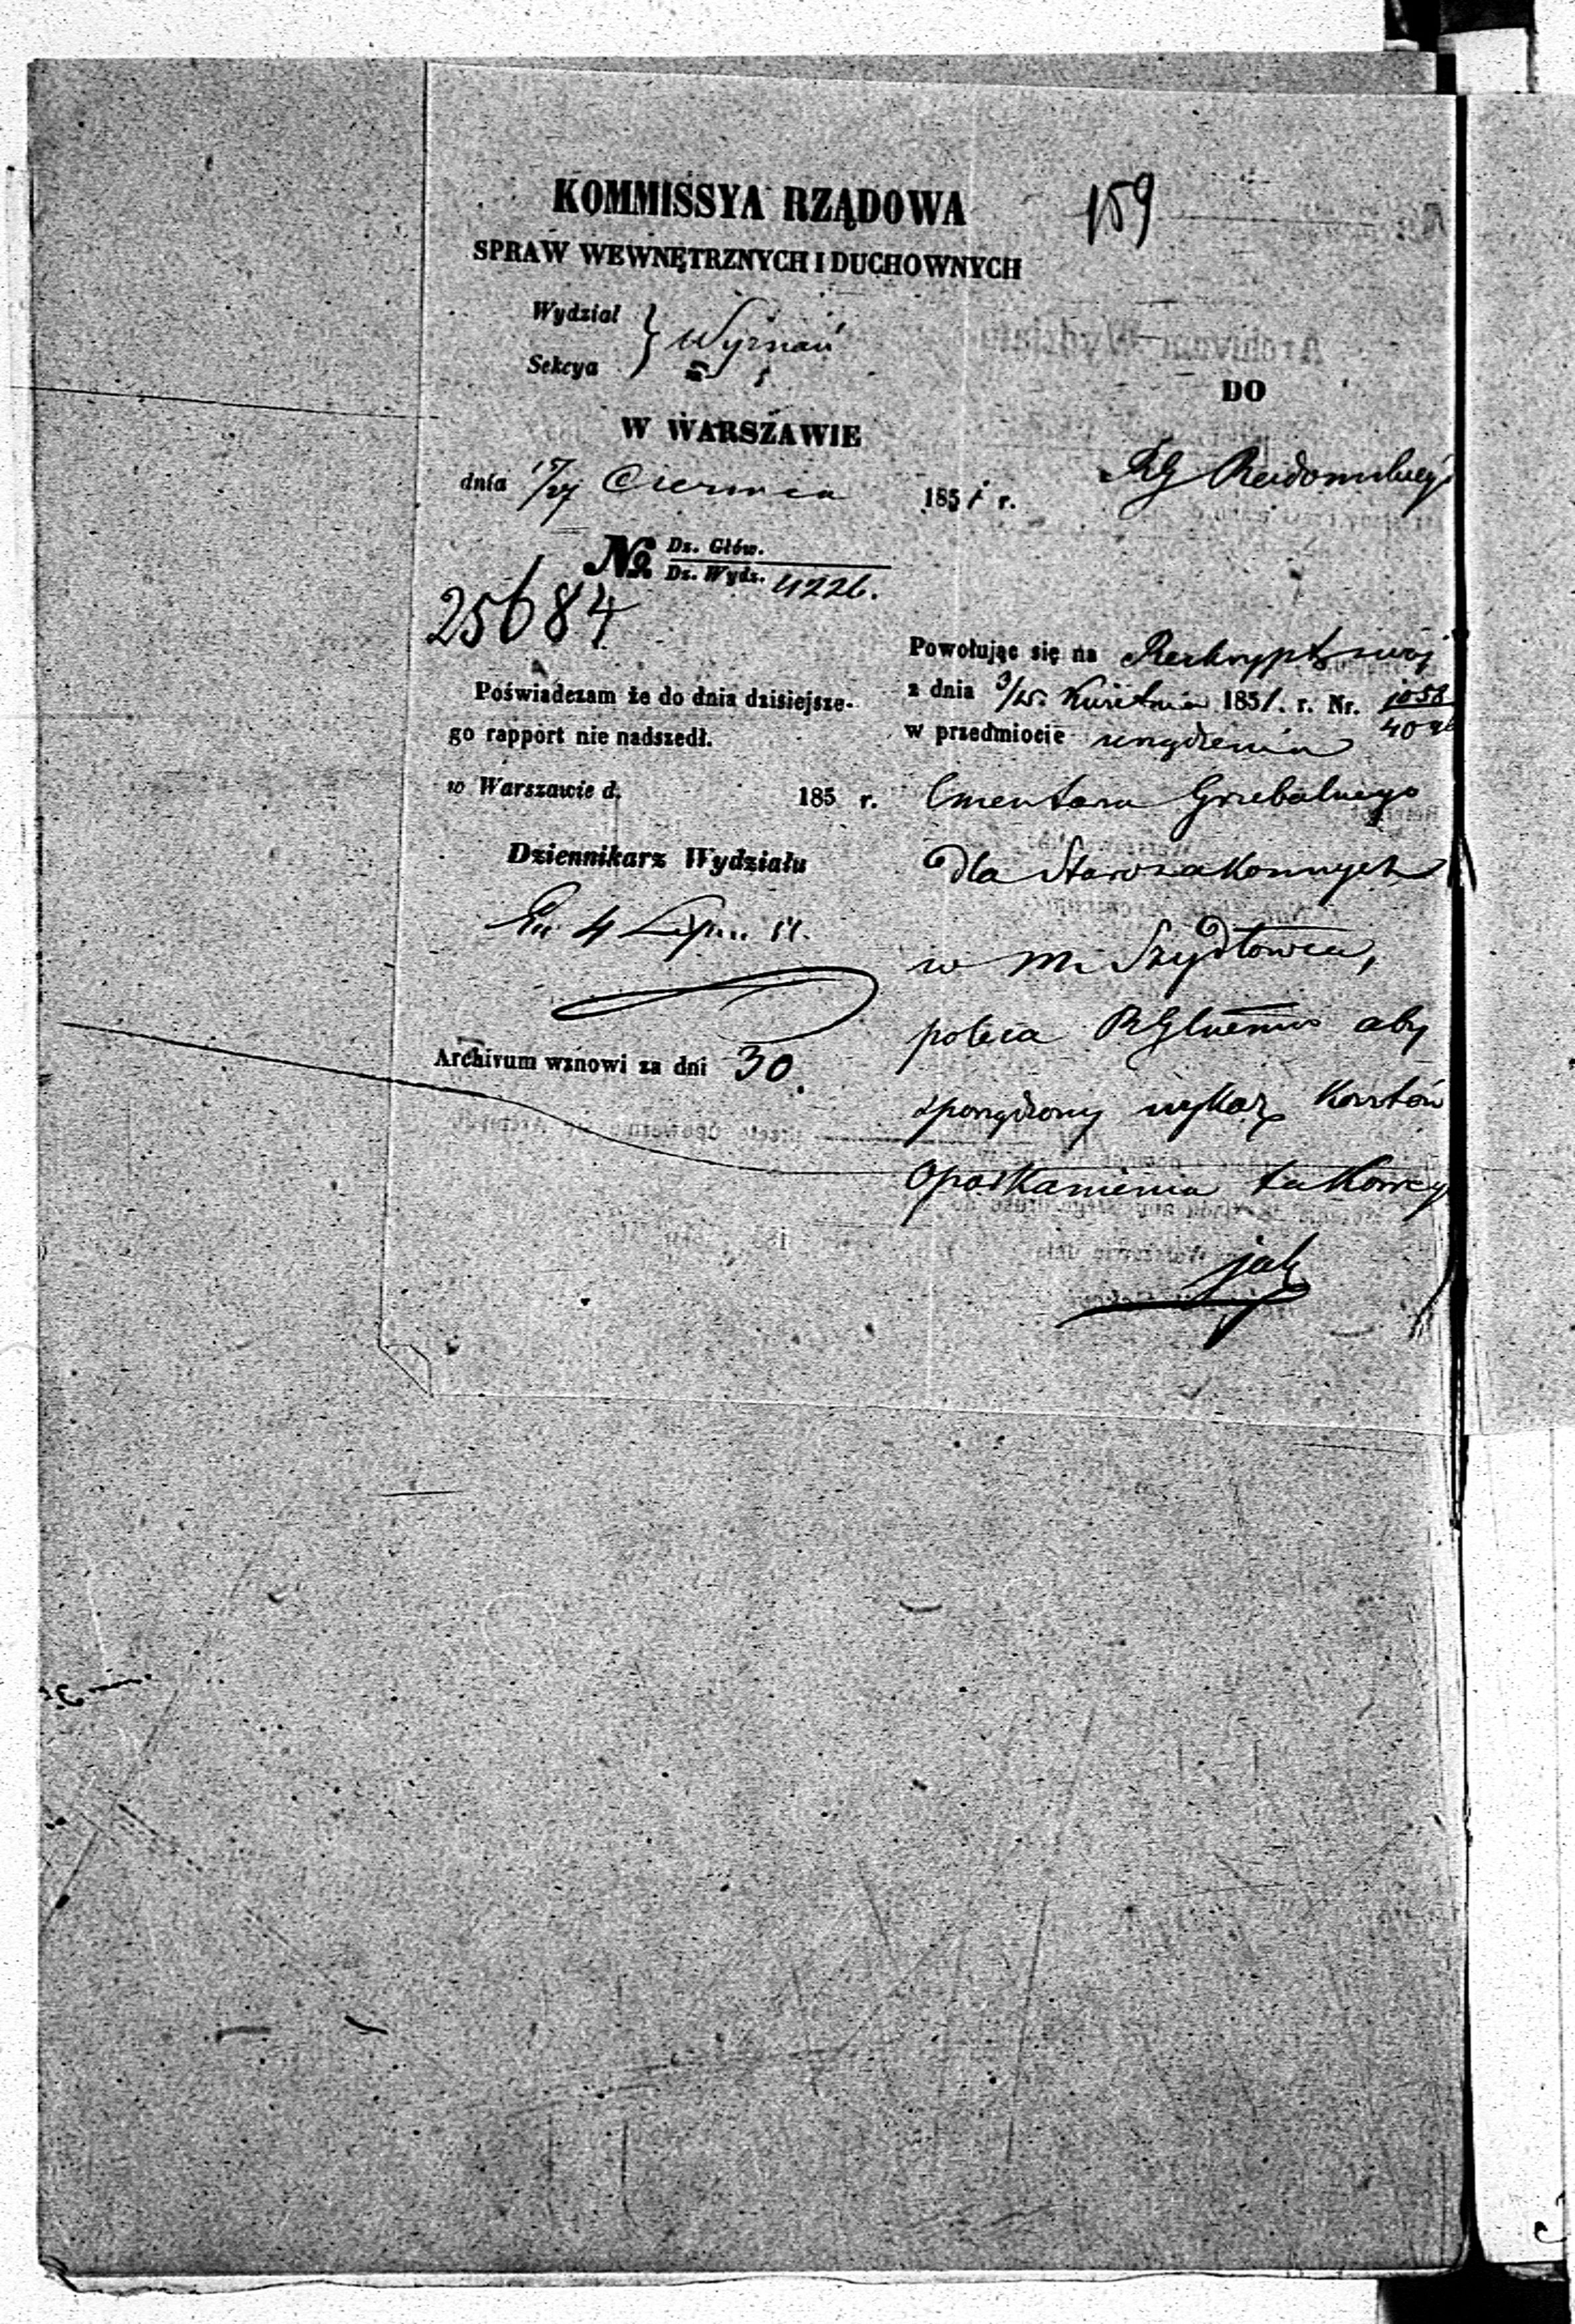 159
KOMMISSYA RZĄDOWA
SPRAW WEWNĘTRZNYCH I DUCHOWNYCH
Wydział
Sekcya } Wyznań
W WARSZAWIE
dnia 15/27 Czerwca 1851 r.
№ Dz. Głów.
Dz. Wydz. 4226.
25684
Poświadczam że do dnia dzisiejsze-
go rapport nie nadszedł.
w Warszawie d. 185 r.
Dziennikarz Wydziału
4
Archivum wznowi za dni 30.
DO
RG Radomskiego
Powołując się na Reskrypt swój
z dnia 3/15 Kwietnia 1851. r. Nr. 1058
w przedmiocie urządzenia
Cmentarza Grzebalnego
dla Starozakonnych
w m. Szydłowcu,
poleca RGlnemu aby
sporządzony wykaz kosztów
Oparkanienia takowego
jak